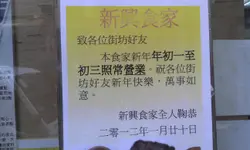 新興食家
致各位街坊好友
本食家新年年初一至
初三照常營業。祝各位街
坊好友新年快樂，萬事如
意。
新興食家全人鞠恭
二零一二年一月廿十日